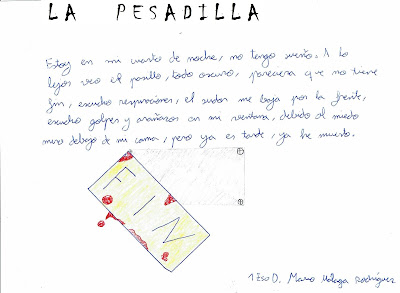 LA PESADILLA
Estoy en mi cuarto de noche, no tengo sueño. A lo
lejos veo el pasillo, todo oscuro, pareciera que no tiene
fin, escucho respiraciones, el sudor me baja por la frente,
escucho golpes y arañazos en mi ventana, debido al miedo
miro debajo de mi cama, pero ya es tarde, ya he muerto.
FIN
1ºESO D. Mario Malaga Rodríguez